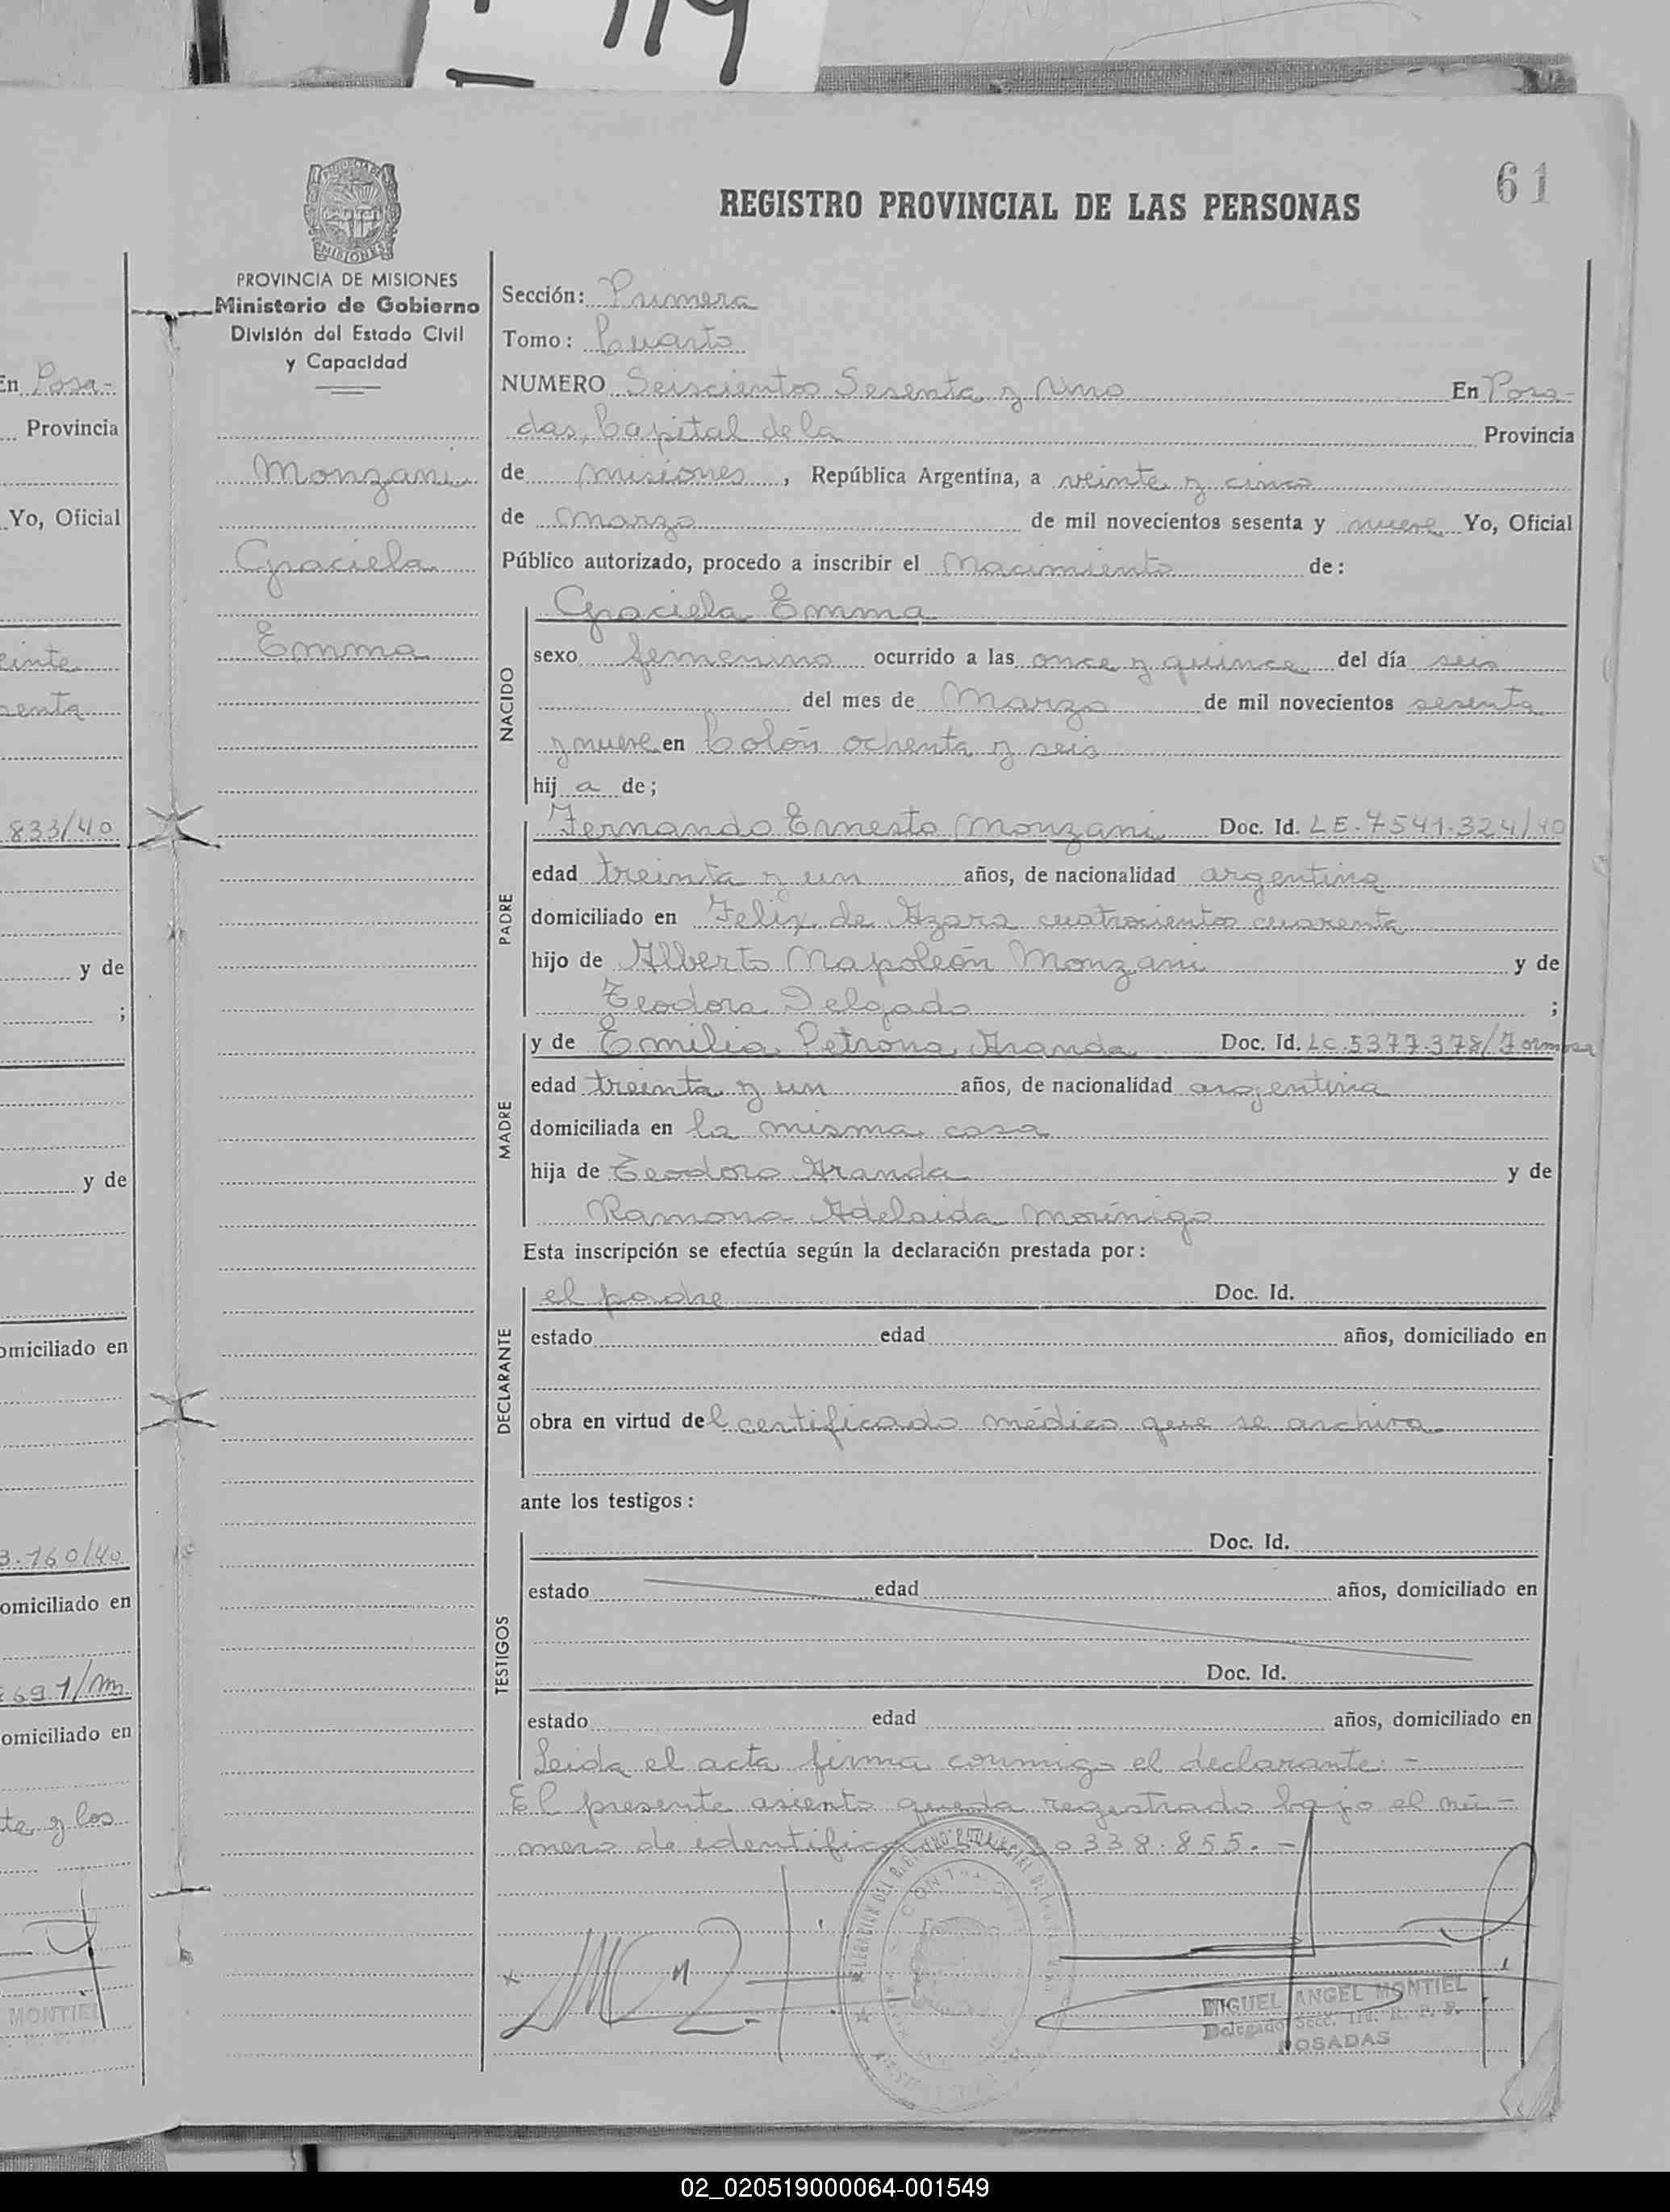 119
REGISTRO PROVINCIAL DE LAS PERSONAS
61
MISIONES
PROVINCIA DE MISIONES
Ministerio de Gobierno
División del Estado Civil
y Capacidad
Monzani
Graciela
Emma
Sección: Primera
Tomo: Cuarto
NUMERO Seiscientos Sesenta y Uno En Posa-
das, Capital de la Provincia
de Misiones, República Argentina, a veinte y cinco
de Marzo de mil novecientos sesenta y nueve Yo, Oficial
Público autorizado, procedo a inscribir el Nacimiento de:
NACIDO
Graciela Emma
sexo femenino ocurrido a las once y quince del día seis
del mes de Marzo de mil novecientos sesenta
y nueve en Colón ochenta y seis
hij a de;
PADRE
Fernando Ernesto Monzani Doc. Id. LE.7541.324/40
edad treinta y un años, de nacionalidad argentina
domiciliado en Felix de Azara cuatrocientos cuarenta
hijo de Alberto Napoleón Monzani y de
Teodora Delgado ;
MADRE
y de Emilia Petrona Aranda Doc. Id. LC.5377.378/Formosa
edad treinta y un años, de nacionalidad argentina
domiciliada en la misma casa
hija de Teodoro Aranda y de
Ramona Adelaida Morínigo
Esta inscripción se efectúa según la declaración prestada por:
DECLARANTE
el padre Doc. Id.
estado edad años, domiciliado en
obra en virtud del certificado médico que se archiva
ante los testigos:
TESTIGOS
Doc. Id.
estado edad años, domiciliado en
Doc. Id.
estado edad años, domiciliado en
Leida el acta firma conmigo el declarante.-
El presente asiento queda registrado bajo el nú-
mero de identific 0338.855.-
MIGUEL ANGEL MONTIEL
Delegado Secc. 1ra. R. P. P.
POSADAS
En Posa-
Provincia
Yo, Oficial
einte
senta
833/40
y de
;
y de
omiciliado en
3.160/40
omiciliado en
691/Mn.
omiciliado en
te y los
MONTIEL
02_020519000064-001549